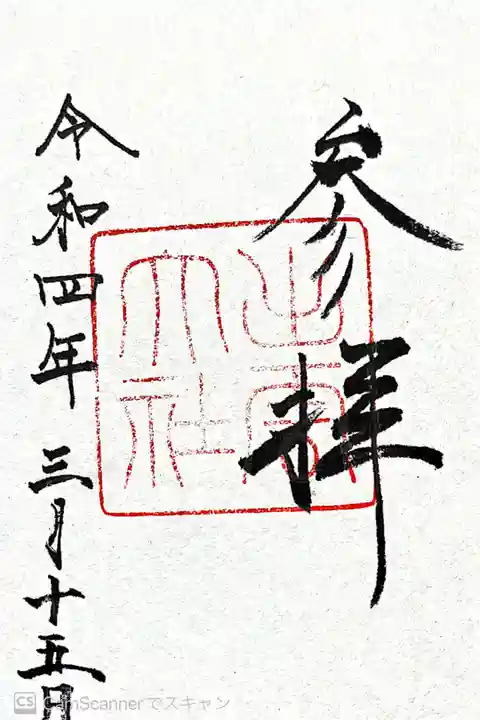 参拝
出雲大社
令和四年三月十五日
CS CamScannerでスキャン